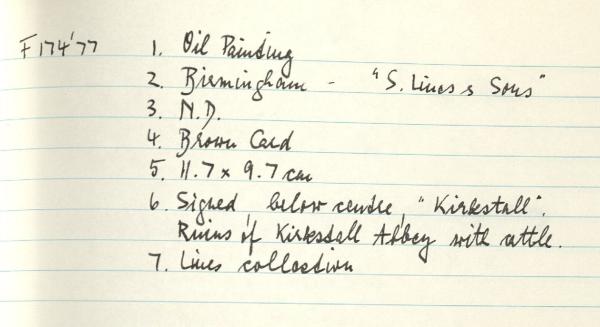 F174'77 1. Oil Painting
2. Birmingham - "S. Lines & Sons"
3. N.D.
4. Brown Card
5. 11.7 x 9.7 cm
6. Signed, below centre, "Kirkstall".
Ruins of Kirkstall Abbey with cattle.
7. Lines collection